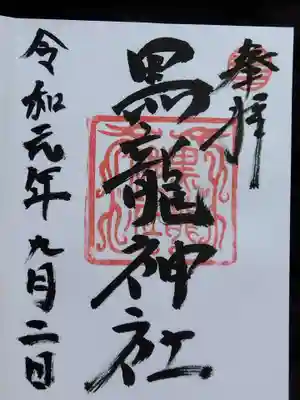 奉拝
黒龍神社
令和元年九月二日